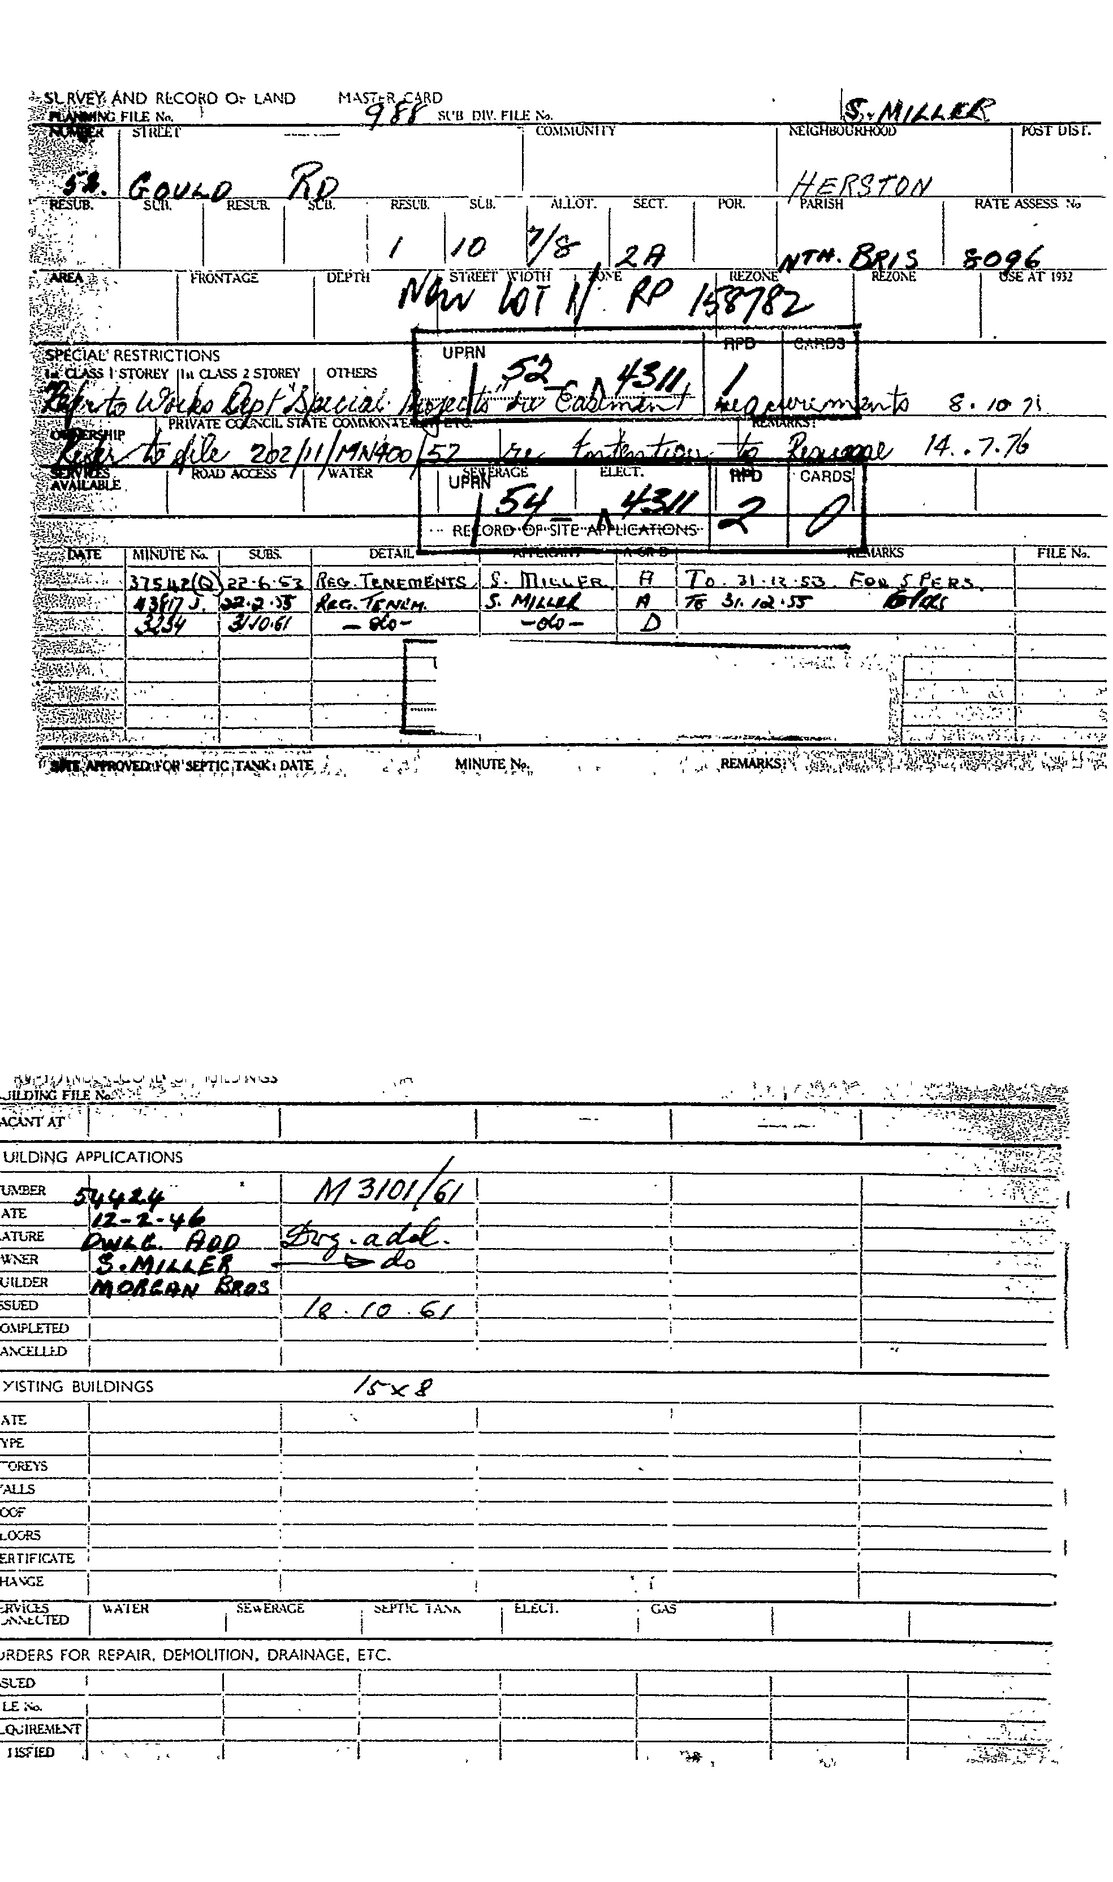 SURVEY AND RECORD OF LAND MASTER CARD
PLANNING FILE No. 988 SUB DIV. FILE No. S. MILLER
NUMBER STREET COMMUNITY NEIGHBOURHOOD POST DIST.
52. GOULD RD HERSTON
RESUB. SUB. RESUB. SUB. RESUB. SUB. ALLOT. SECT. POR. PARISH RATE ASSESS. No
1 10 7/8 2A NTH. BRIS 8096
AREA FRONTAGE DEPTH STREET WIDTH ZONE REZONE REZONE USE AT 1932
NOW LOT 11 RP 158782
SPECIAL RESTRICTIONS UPRN RPD CARDS
1st CLASS 1 STOREY 1st CLASS 2 STOREY OTHERS 52 4311 1
Refer to Works Dept "Special Projects" re Easement requirements 8.10.71
OWNERSHIP PRIVATE COUNCIL STATE COMMONWEALTH ETC. REMARKS:
Refer to file 202/11/MN400/52 re Intention to Resume 14.7.76
SERVICES AVAILABLE ROAD ACCESS WATER SEWERAGE ELECT.
UPRN RPD CARDS
54 4311 2 0
RECORD OF SITE APPLICATIONS
DATE MINUTE No. SUBS. DETAIL APPLICANT A OR D REMARKS FILE No.
37542(Q) 22-6-53 REG. TENEMENTS S. MILLER A TO 31-12-53 FOR 5 PERS.
43817 J. 22-2-55 REG. TENEM. S. MILLER A TO 31.12.55
3234 31.10.61 - do - - do - D
SITE APPROVED FOR SEPTIC TANK: DATE MINUTE No. REMARKS:
UILDING FILE No.
ACANT AT
UILDING APPLICATIONS
UMBER 54424 M 3101/61
ATE 12-2-46
ATURE DWLG. ADD Dwg. add.
WNER S. MILLER do
UILDER MORGAN BROS
SSUED 18.10.61
OMPLETED
ANCELLED
XISTING BUILDINGS 15 x 8
ATE
YPE
TOREYS
ALLS
OOF
LOORS
ERTIFICATE
HANGE
ERVICES ONNECTED WATER SEWERAGE SEPTIC TANK ELECT. GAS
ORDERS FOR REPAIR, DEMOLITION, DRAINAGE, ETC.
SSUED
LE No.
QUIREMENT
TISFIED